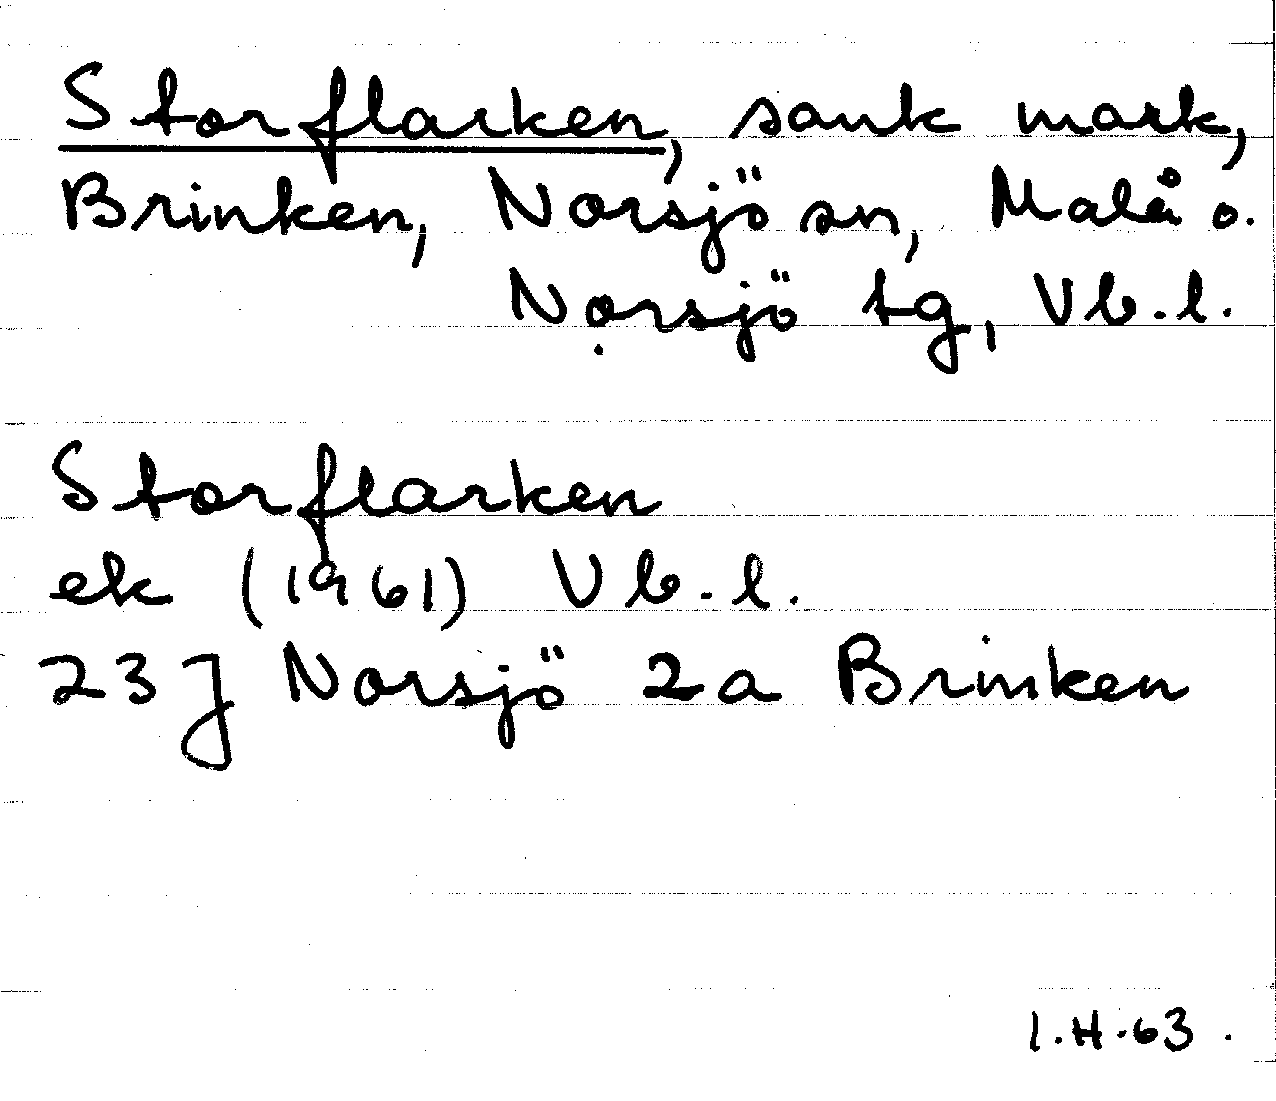 Storflarken, sank mark,
Brinken, Norsjö sn, Malå o.
Norsjö tg, Vb.l.
Storflarken
ek (1961) Vb.l.
23 J Norsjö 2a Brinken
I.H.63.